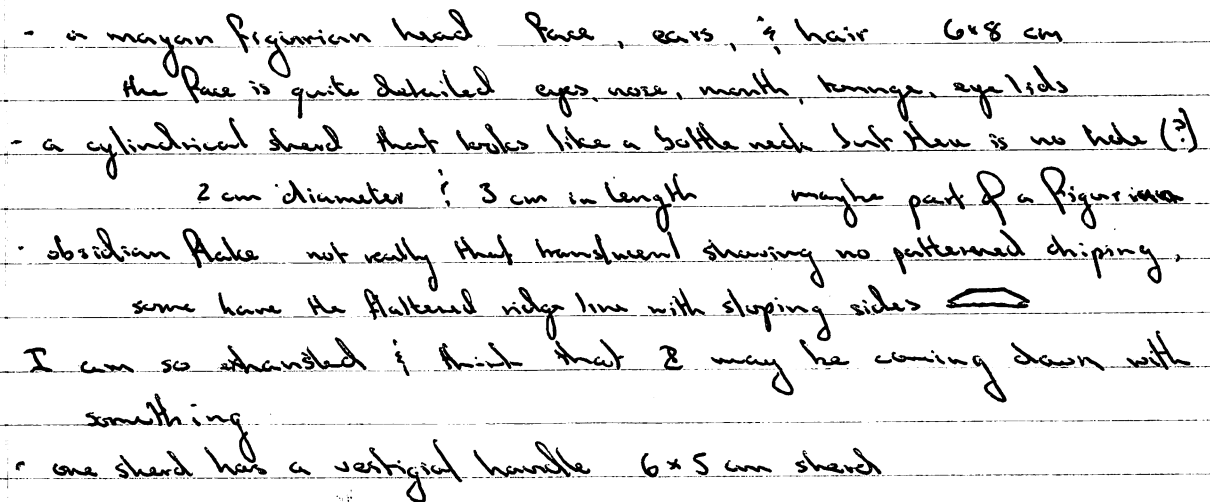 - a mayan figurian head face, ears, & hair 6x8 cm
the face is quite detailed eyes, nose, mouth, tounge, eye lids
- a cylindrical sherd that looks like a bottle neck but there is no hole (?)
2 cm diameter & 3 cm in length maybe part of a figurian
- obsidian flake not really that translucent showing no patterned chiping,
some have the flattened ridge line with sloping sides
I am so exhausted & think that I may be coming down with
something
- one sherd has a vestigial handle 6 x 5 cm sherd